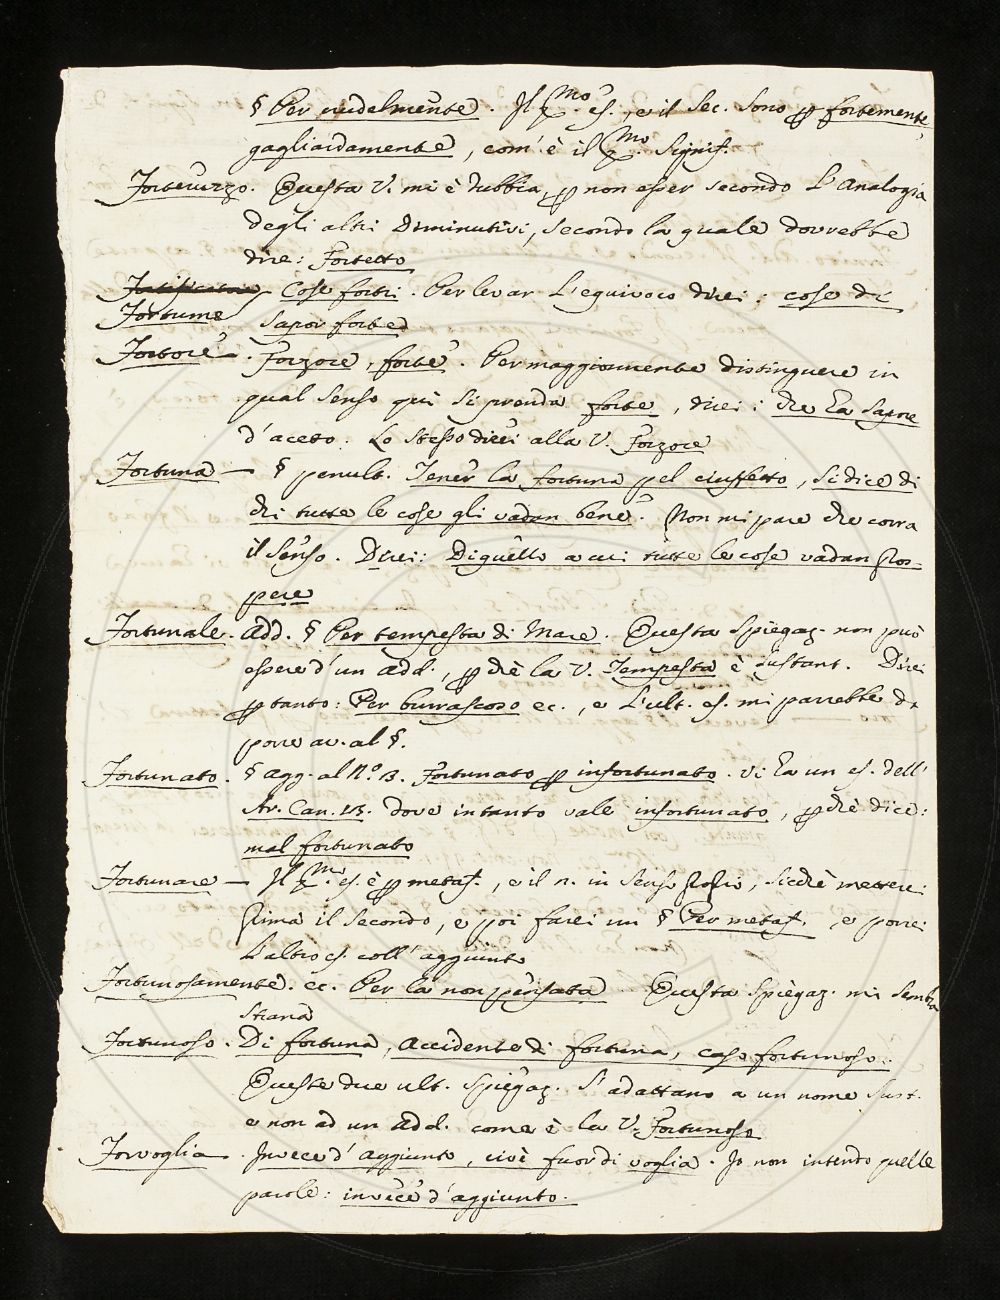 § Per crudelmente. Il p.mo es. e il sec. sono p fortemente,
gagliardamente, com' è il p.mo signif.
Forteruzzo. Questa V. mi è dubbia, p non esser secondo l'Analogia
degli altri Diminutivi, secondo la quale dovrebbe
dire: Fortetto
Fortificare Cose forti. Per levar l'equivoco direi: cose di
Fortume sapor forte
Fortore. Forzore, forte. Per maggiormente distinguere in
qual senso qui si prenda forte, direi: che ha sapore
d'aceto. Lo stesso direi alla V. Forzore
Fortuna — § penult. Tener la fortuna pel ciuffetto, si dice di
chi tutte le cose gli vadan bene. Non mi pare che corra
il senso. Direi: Di quello a cui tutte le cose vadan pros-
pere
Fortunale. Add. § Per tempesta di Mare. Questa spiegaz. non può
essere d'un add., p chè la V. Tempesta è sustant. Direi
p tanto: Per burrascoso ec., e l'ult. es. mi parrebbe da
porre av. al §.
Fortunato. § agg. al N.º 13. Fortunato p infortunato. Vi ha un es. dell'
Ar. Can. 13. dove intanto vale infortunato, p chè dice:
mal fortunato
Fortunare — Il p.mo es. è p metaf., e il n. in senso proprio, sicchè metterei
prima il secondo, e poi farei un § Per metaf. e porrei
l'altro es. coll'aggiunto
Fortunosamente. ec. Per la non pensata Questa spiegaz. mi sembra
strana
Fortunoso. Di fortuna, accidente di fortuna, caso fortunoso.
Queste due ult. spiegaz. s'adattano a un nome sust.
e non ad un add. come è la V. Fortunoso
Forvoglia. Invece d'aggiunto, cioè fuor di voglia. Io non intendo quelle
parole: invece d'aggiunto.